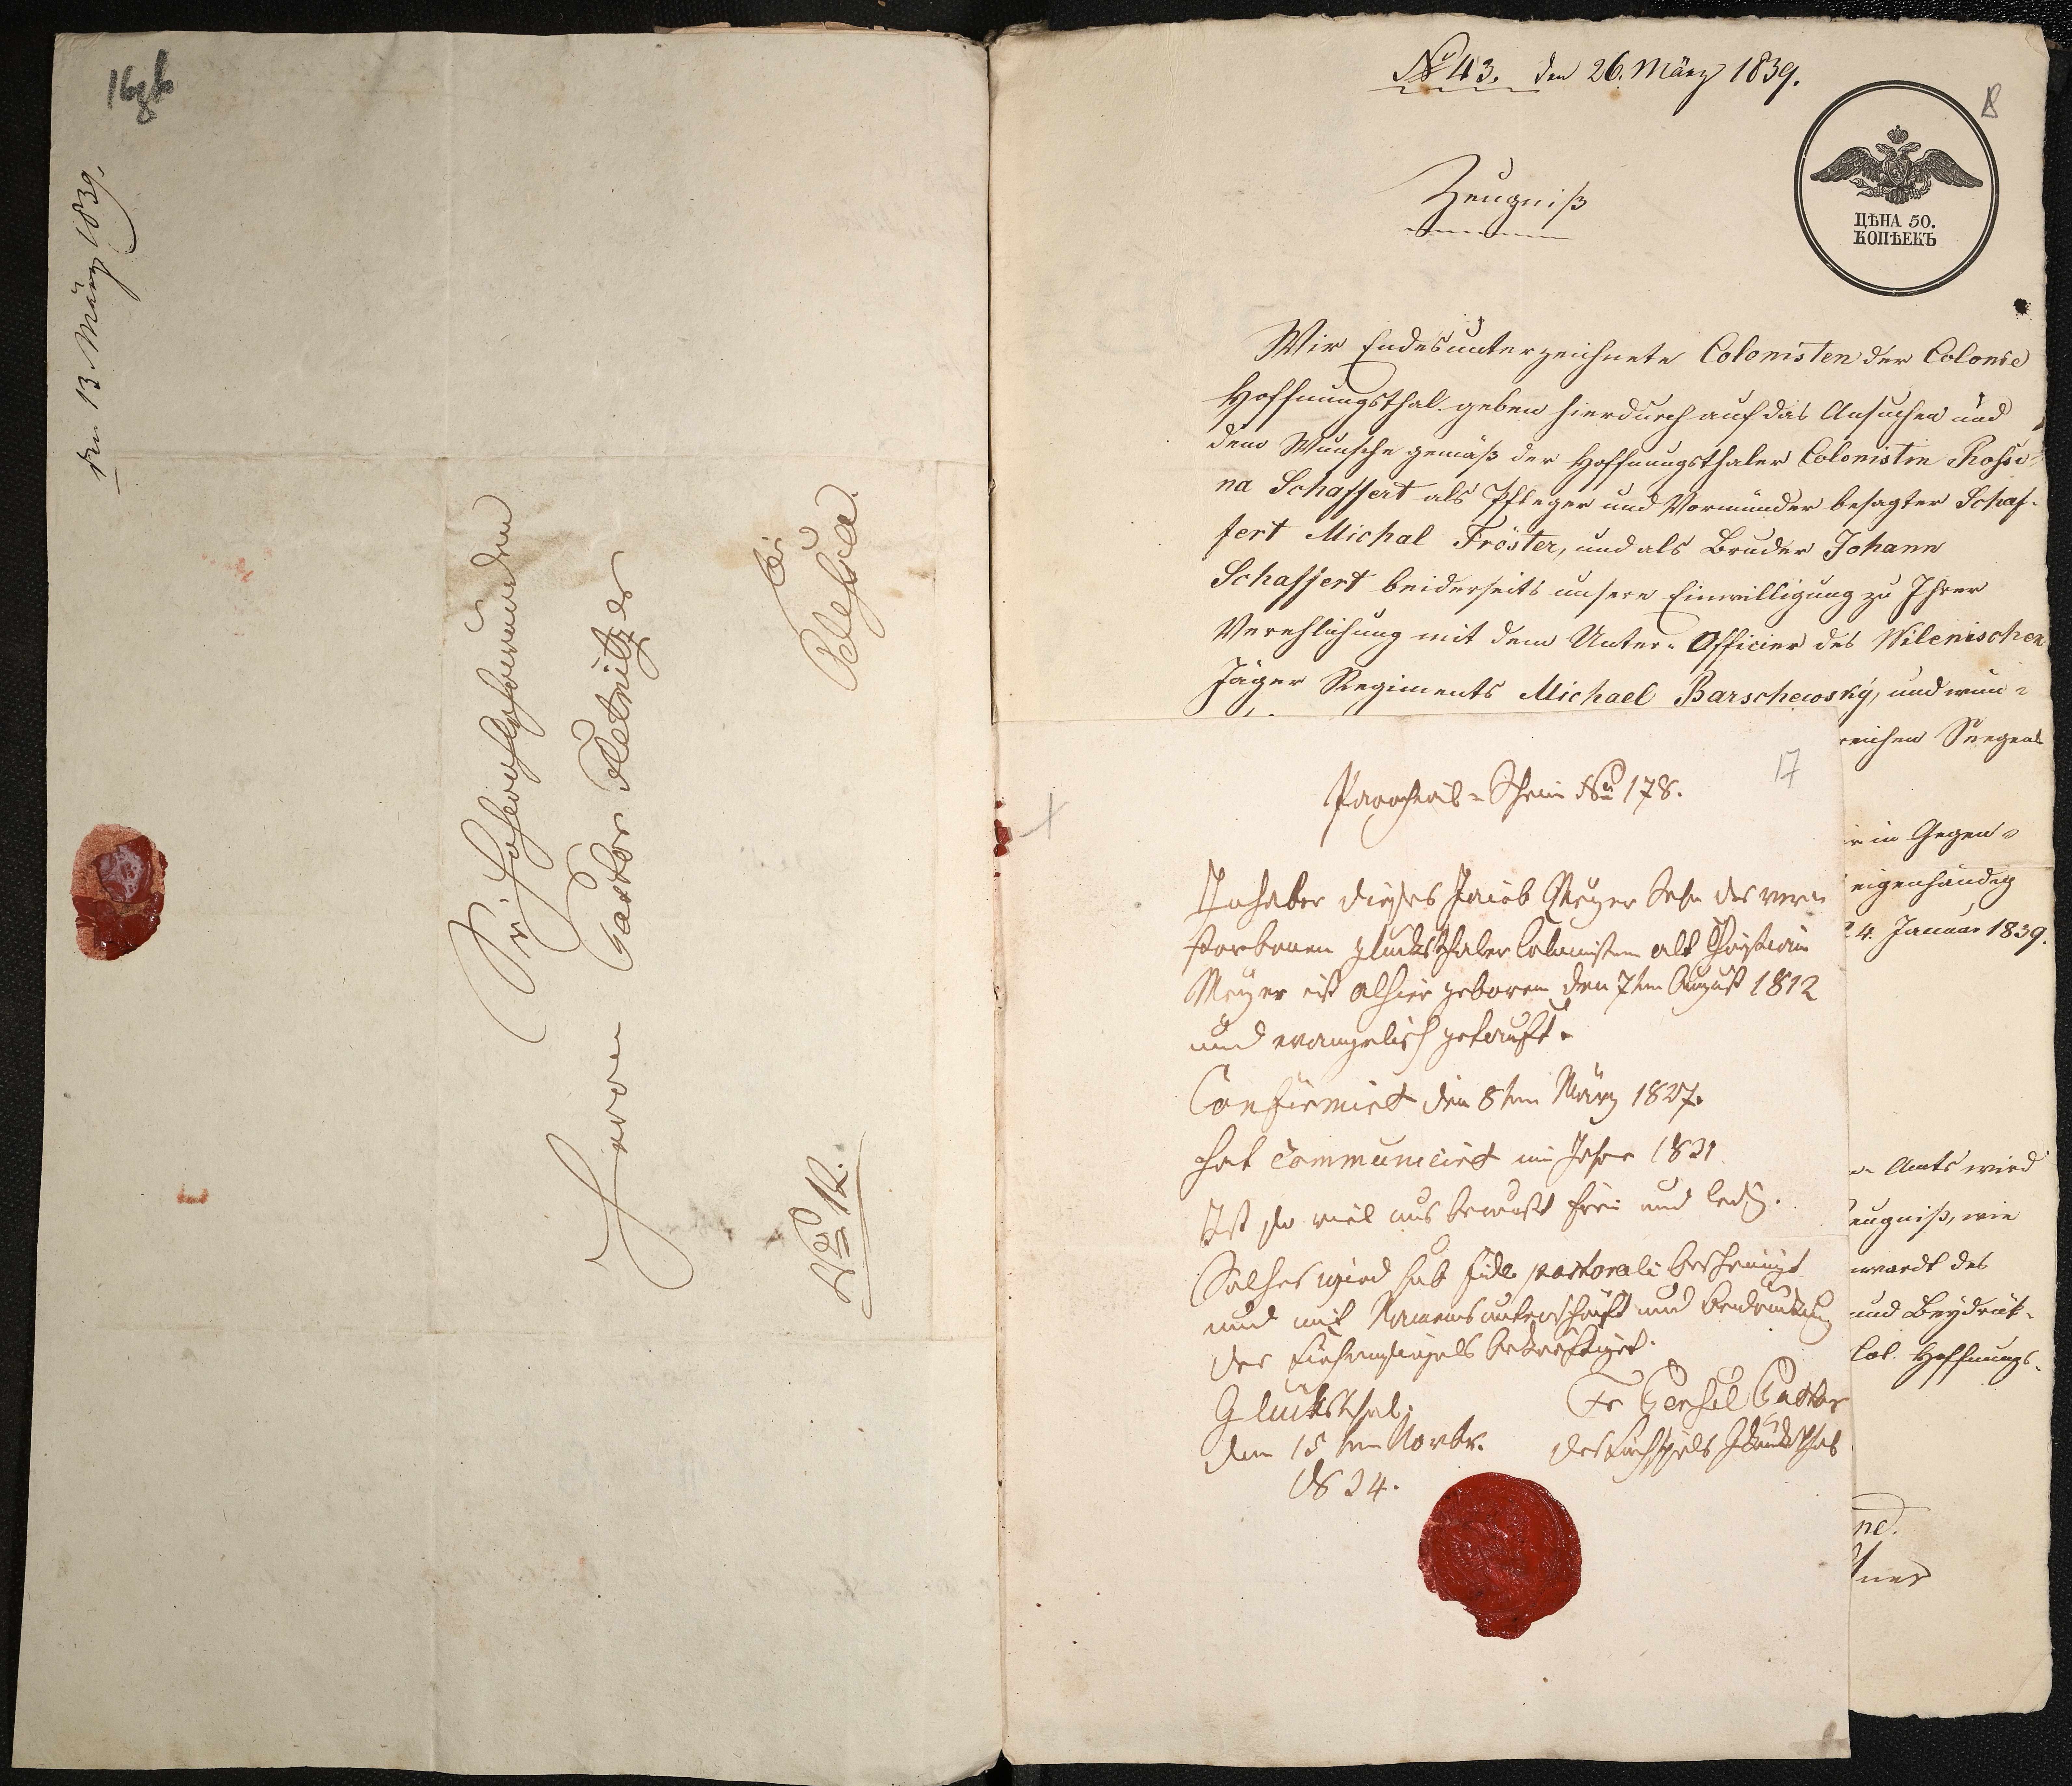 den 13 März 1839.
Sr. Hochwohlehrwürden
Herrn Pastor Fletnitzer
in
Odessa.
No 12.
No 43. den 26. März 1839.
8
ЦѢНА 50.
КОПѢЕКЪ
Zeugniß
Wir Endesunterzeichnete Colonisten der Colonie
Hoffnungsthal geben hierdurch auf das Ansuchen und
dem Wunsche gemäß der Hoffnungsthaler Colonistin Rosi-
na Schaffert als Pfleger und Vormünder besagter Schaf-
fert Michal Fröster, und als Bruder Johann
Schaffert beiderseits unsere Einwilligung zu Ihrer
Verehlichung mit dem Unter-Officier des Wilenischen
Jäger Regiments Michael Barschewosky, und wün-
reichen Seegens
in Gegen-
eigenhändig
24. Januar 1839.
Amts wird
Zeugniß, wie
und Beydrük-
Col. Hoffnungs-
17
Parochial-Schein No 178.
Inhaber dieses Jacob Meyer Sohn des ver-
storbenen Glücksthaler Colonisten alt Christian
Meyer ist alhier geboren den 7ten August 1812
und evangelisch getauft.
Confirmirt den 8ten März 1827.
hat communicirt im Jahre 1831
Ist so viel uns bewußt frei und ledig.
Solches wird sub fide pastorali bescheinigt
und mit Namensunterschrift und Beidrückung
des Kirchensiegels bekräftiget.
Glücksthal.
den 15ten Novbr.
1834.
Fr Pensel Pastor
des Kirchspiels Glücksthal